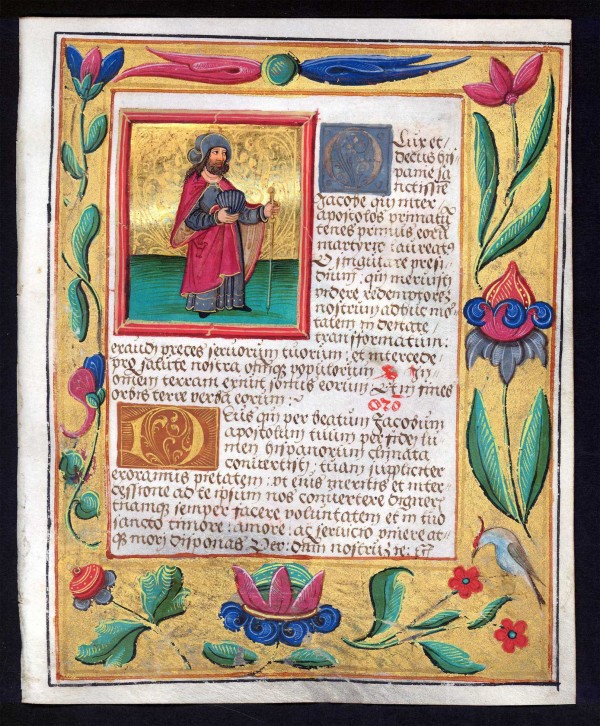 O Lux et
decus hy
spanie sa
nctissie
Jacobe qui inter
apostolos primatū
tenes primus eorū
martyrio laureatꝰ
O singulare presi
dium: qui meruisti
videre redemptorē
nostrum adhuc mor
talem in deitate
transformatum:
exaudi preces servorum tuorum: et intercede
pro salute nostra omniūqꝫ populorum. ℣ In
omnem terram exivit sonus eorum ℟ Et in fines
orbis terre verba eorum:
Orō
Deus qui per beatum Jacobum
apostolum tuum per fidei lu
men hispanorum climata
convertisti: tuam suppliciter
exoramus pietatem: ut eius meritis et inter
cessione ad te ipsum nos convertere digner
tuamqꝫ semper facere voluntatem et in tuo
sancto timore: amore: ac servicio vivere at
qꝫ mori disponas. Per. dnm nostrum